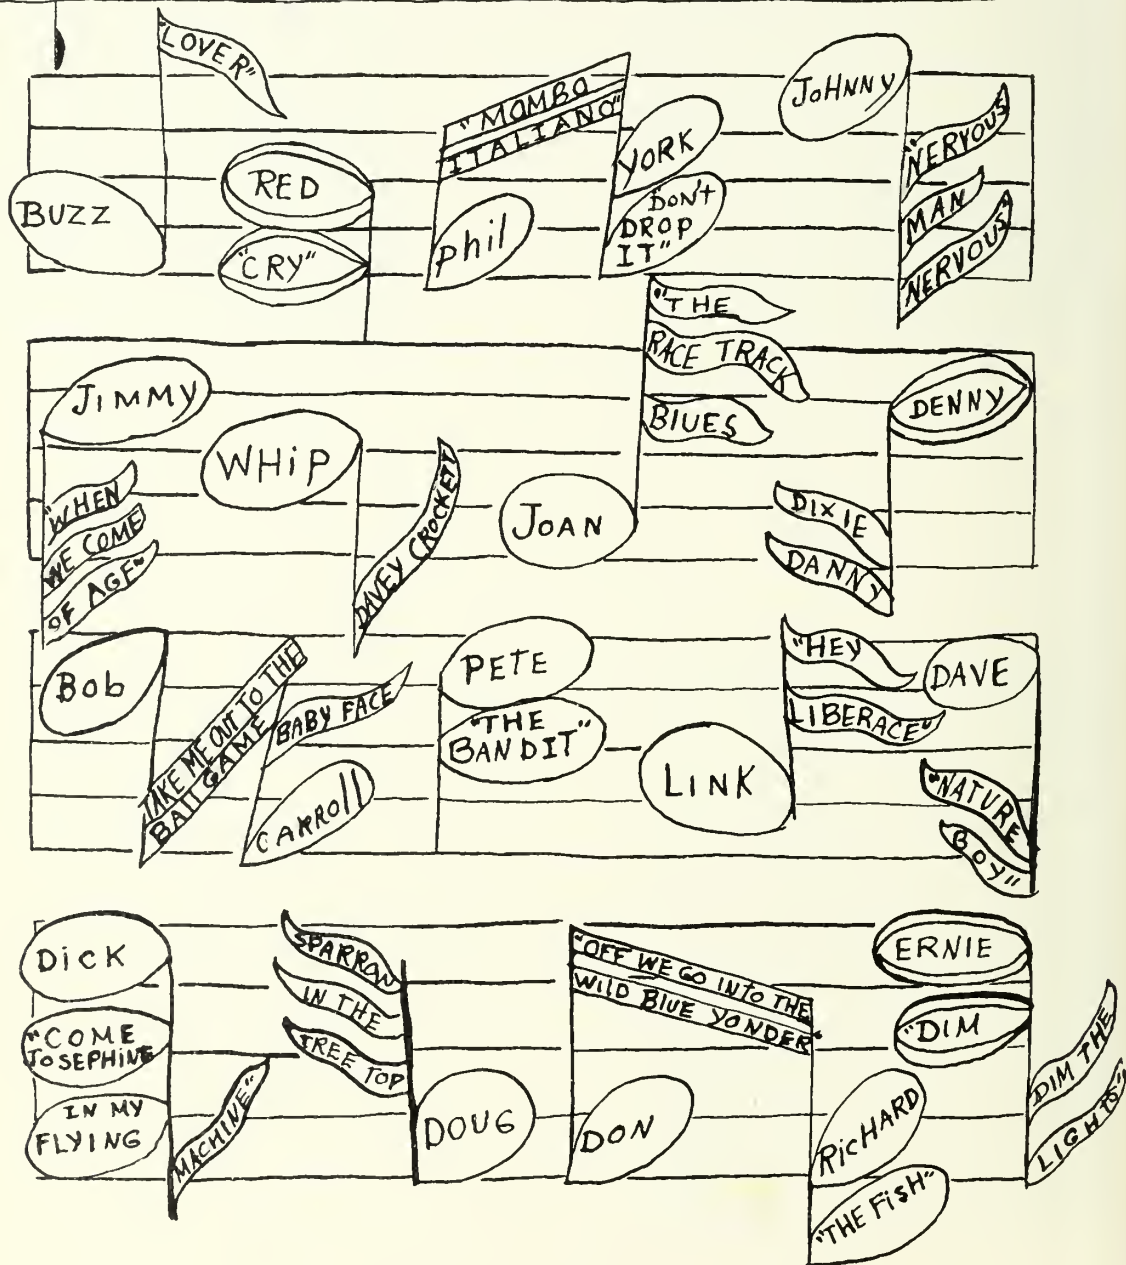 BUZZ
"LOVER"
RED
"CRY"
Phil
"MOMBO
ITALIANO"
YORK
DON't
DROP
IT"
JoHNNY
"NERVOUS
MAN
NERVOUS"
JIMMY
"WHEN
WE COME
OF AGE"
WHiP
DAVEY CROCKETT
JOAN
"THE
RACE TRACK
BlUES
DENNY
DIXIE
DANNY
Bob
TAKE ME OUT TO THE
BAll GAME
BABY FACE
CARROll
PETE
"THE
BANDIT"
LINK
"HEY
LIBERACE"
DAVE
"NATURE
BOY"
DicK
"COME
JOSEPHINE
IN MY
FLYING
MACHINE"
SPARROW
IN THE
TREE TOP
DOUG
DON
"OFF WE GO INTO THE
WilD BlUE YONDER"
RicHARD
"THE FisH"
ERNIE
"DIM
DIM THE
LIGHTS"